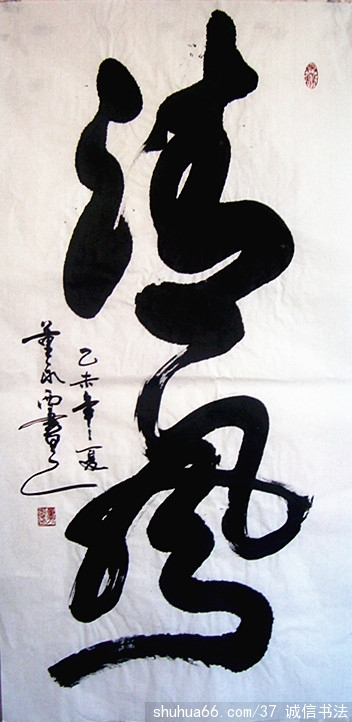 清风
乙未年夏
董永雨书
shuhua66.com/37 诚信书法